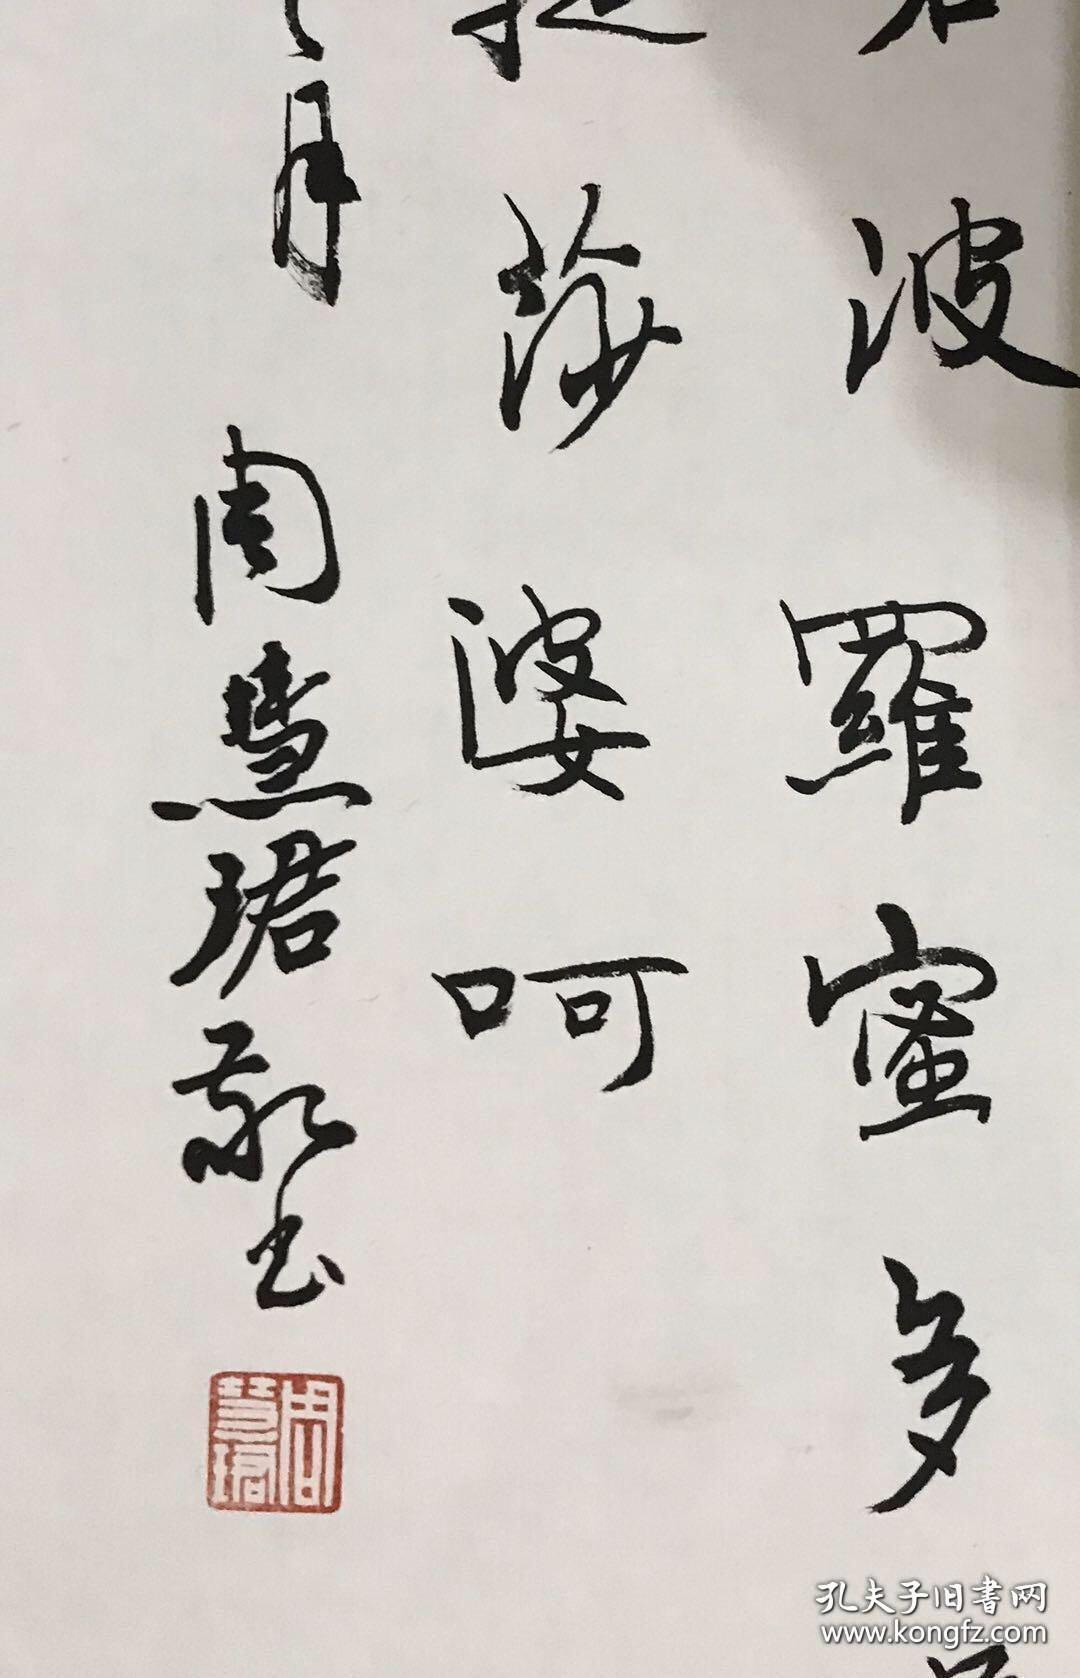 波羅蜜多
莎婆呵
月
周慧珺敬书
周慧珺
孔夫子旧书网
www.kongfz.com